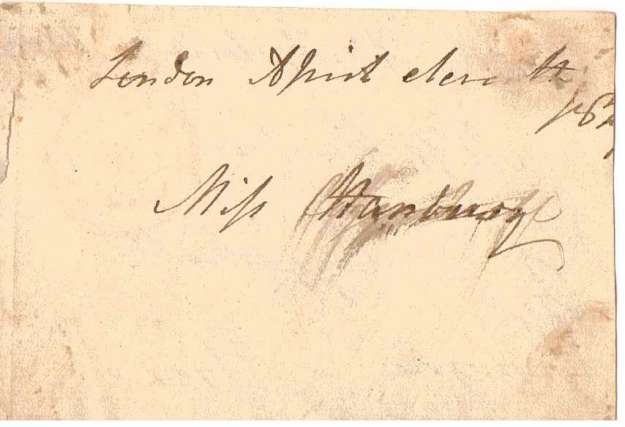 London April eleventh
Miss Hanbury